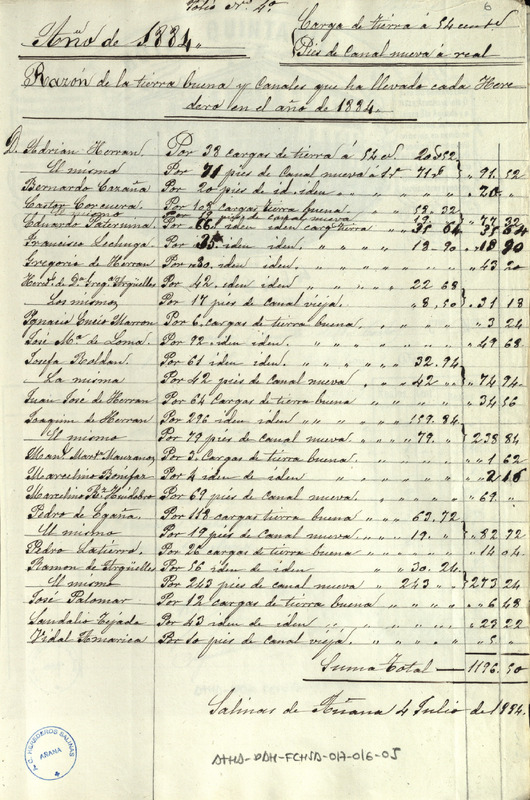 Folio Nº 4º
6
Año de 1884.
Carga de tierra á 54 cent.
Piés de canal nueva á real
Razón de la tierra buena y Canales que ha llevado cada Here
dero en el año de 1884.
D. Adrian Herran. Por 38 cargas de tierra á 54 cs. 20,52
El mismo Por 71 pies de Canal nueva á 1r. 71 " 91 52
Bernardo Cazaña Por 20 pies de id. iden " " " 20 "
Castor Corcuera Por 108 cargas tierra buena. 58. 32
El mismo Por 19 pies de canal nueva 19 " 77 32
Eduardo Paternina Por 66 iden iden carg tierra " 35 64 " 35 64
Francisco Lechuga Por 35 iden iden. " " 18 90 " 18 90
Gregorio de Herran Por 80 iden iden " " " " 43 20
Hereds. de Dn. Greg. Argüelles Por 42 iden iden " 22 68
Los mismos Por 17 piés de canal vieja. " 8, 50 " 31 18
Ygnacio Encio Marron Por 6 cargas de tierra buena " " " 3 24
José Mª de Loma Por 92 iden iden. " " " " 49 68
Josefa Roldan Por 61 iden iden. " " 32. 94
La misma Por 42 piés de canal nueva " 42 " " 74 94
Juan José de Herran Por 64 Cargas de tierra buena " " " 34 56
Joaquin de Herran Por 296 iden iden " " " 159. 84
El mismo Por 79 pies de canal nueva " " " 79. " 238 84
Man. Mart. Manzanos Por 3 Cargas de tierra buena " " " 1 62
Marcelino Bonifaz Por 4 iden de iden " " " " 2 16
Marcelino Rz. Huidobro Por 69 piés de canal nueva. " " " 69. "
Pedro de Egaña Por 118 cargas tierra buena " " 63, 72
El mismo Por 19 piés de canal nueva " " 19. " " 82 72
Pedro Latierro. Por 26 cargas de tierra buena " " " 14 04
Ramon de Argüelles Por 56 iden de iden " " 30. 24
El mismo Por 243 piés de canal nueva " 243 " " 273 24
José Palomar Por 12 cargas de tierra buena " " " 6 48
Sandalio Tejada Por 43 iden de iden " " " " 23 22
Vidal Amarica Por 10 piés de canal vieja. " " " " 5 "
Suma Total 1196. 50
Salinas de Añana 4 Julio de 1884.
T.C. HEREDEROS SALINAS
AÑANA
ATHA-DAH-FCHSA-017-016-05